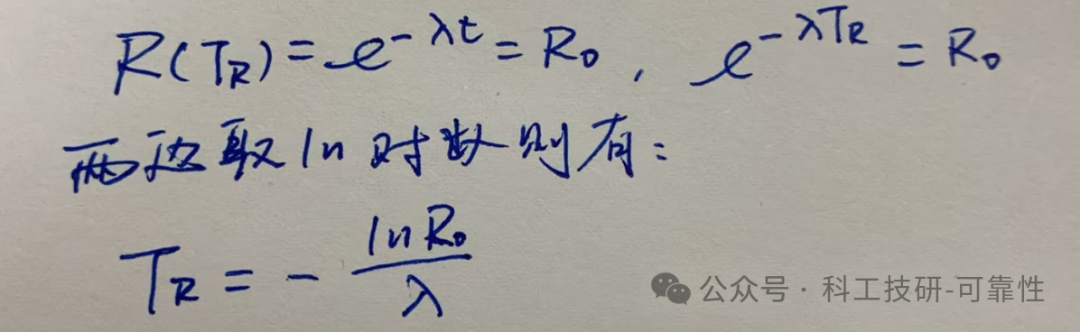 R(T_R) = e^{-λt} = R₀, e^{-λT_R} = R₀
两边取ln对数则有:
T_R = - \frac{ln R₀}{λ}
公众号 · 科工技研-可靠性